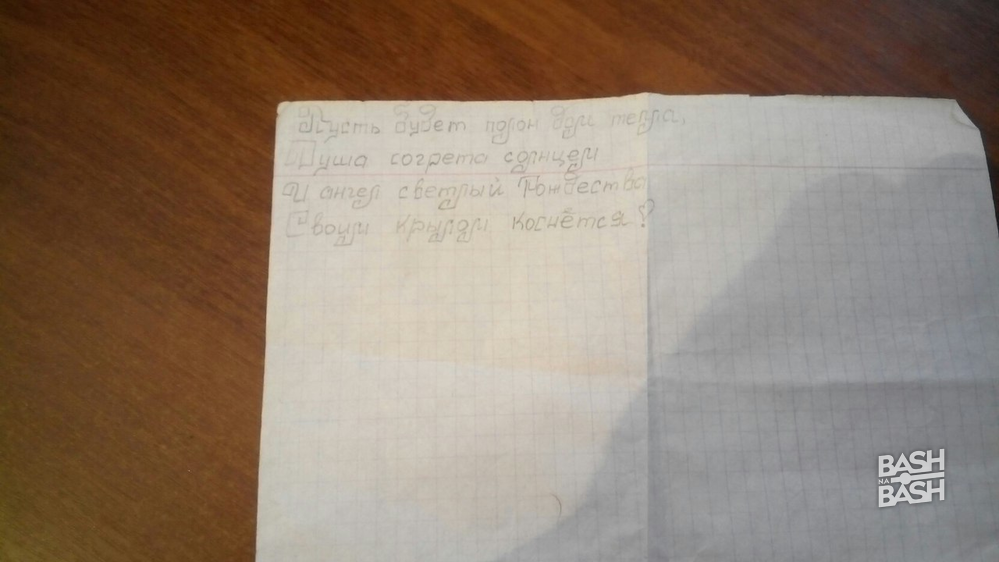 Пусть будет полон дом тепла,
Душа согрета солнцем
И ангел светлый Рождества
Своим крылом коснётся!
BASH
NA
BASH